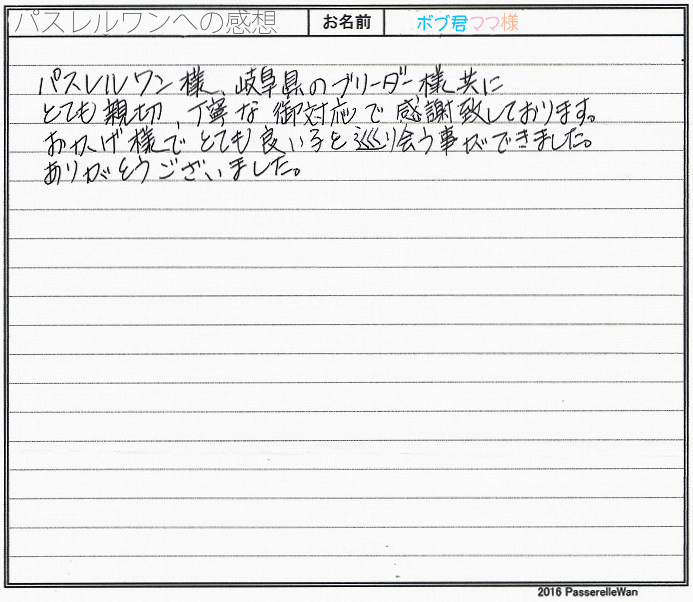 パスレルワンへの感想 お名前 ボブ君ママ様
パスレルワン様、岐阜県のブリーダー様共に
とても親切、丁寧な御対応で感謝致しております。
おかげ様でとても良い子と巡り会う事ができました。
ありがとうございました。
2016 PasserelleWan